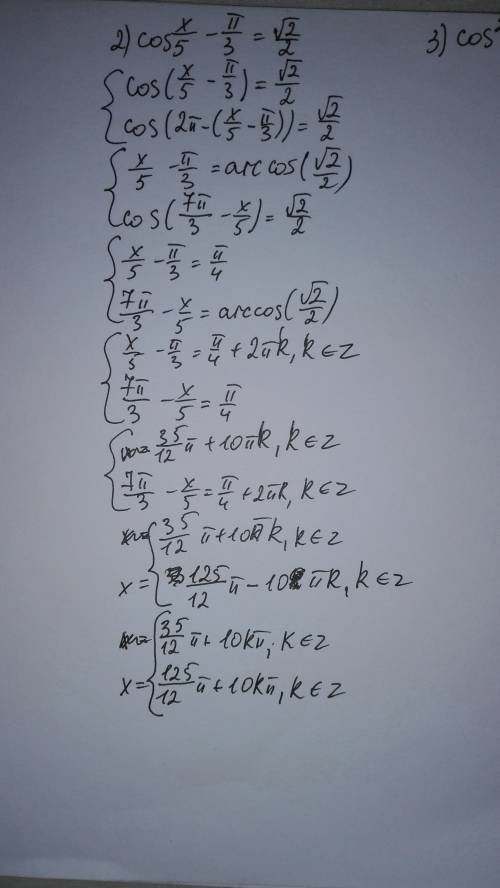 2) cos x/5 - π/3 = √2/2
3) cos
{ cos(x/5 - π/3) = √2/2
cos(2π-(x/5 - π/3)) = √2/2
{ x/5 - π/3 = arccos(√2/2)
cos(7π/3 - x/5) = √2/2
{ x/5 - π/3 = π/4
7π/3 - x/5 = arccos(√2/2)
{ x/5 - π/3 = π/4 + 2πk, k ∈ z
7π/3 - x/5 = π/4
{ 35/12 π + 10πk, k ∈ z
7π/3 - x/5 = π/4 + 2πk, k ∈ z
{ 35/12 π + 10πk, k ∈ z
x = 125/12 π - 10πk, k ∈ z
{ 35/12 π + 10kπ, k ∈ z
x = 125/12 π + 10kπ, k ∈ z